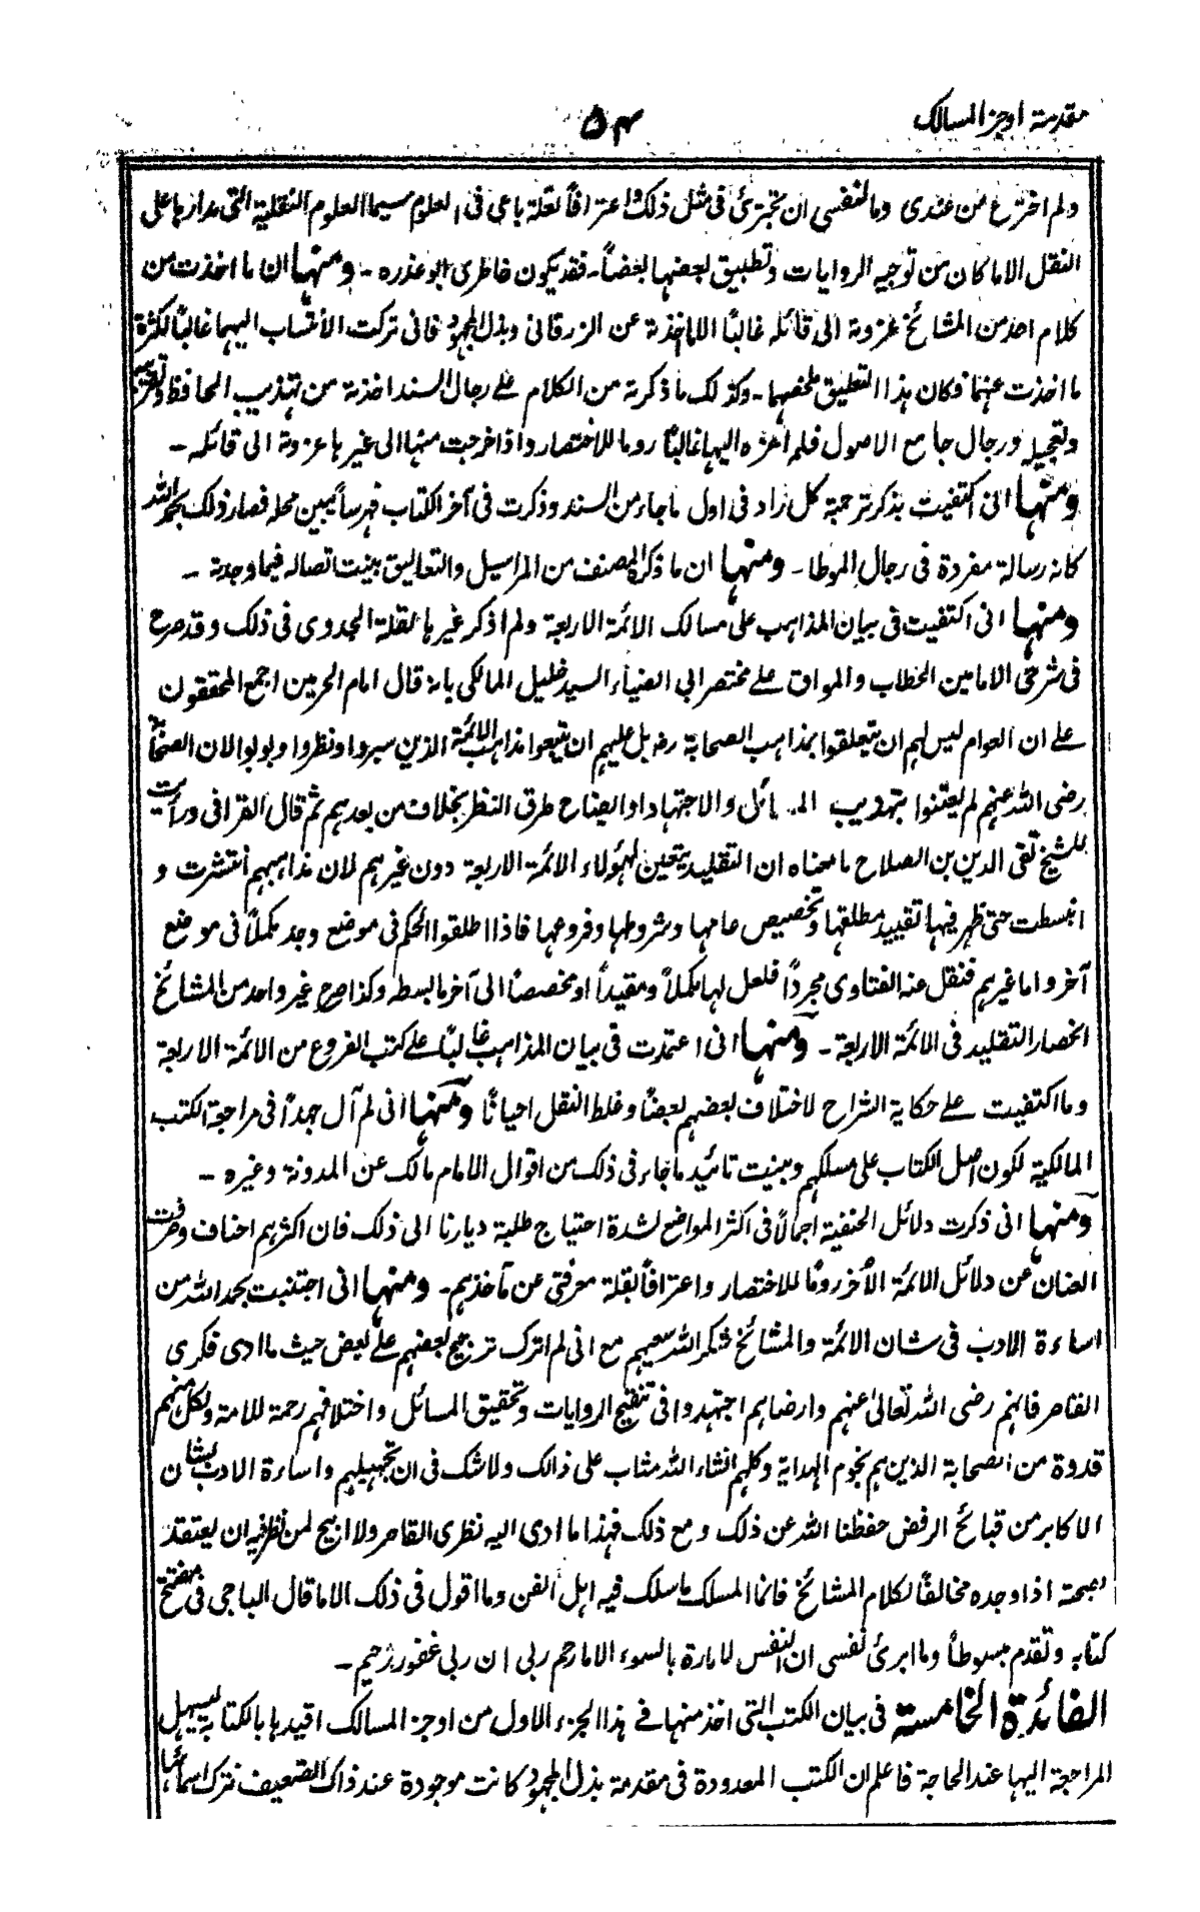 مقدمة اوجز المسالك
۵۴
ولم اخترع من عندى وما لنفسى ان تجترئ فى مثل ذلك واعترافاً لقلة باعى فى العلوم سيما العلوم النقلية التى مدارها على
النقل الا ما كان من توجيه الروايات وتطبيق بعضها بعضاً۔ فقد يكون خاطرى ابو عذره۔ ومنها ان ما اخذت من
كلام احد من المشائخ عزوته الى قائله غالبًا الا ما اخذته عن الزرقانى وبذل المجهود فانى تركت الانتساب اليهما غالبًا لكثرة
ما اخذت عنهما فكان هذا التعليق ملخصهما۔ وكذلك ما ذكرته من الكلام على رجال السند اخذته من تهذيب الحافظ وتقريبه
وتعجيله ورجال جامع الاصول فلم اعزه اليها غالبًا روما للاختصار واذا خرجت منها الى غيرها عزوته الى قائله۔
ومنها انى اكتفيت بذكر ترجمة كل راد فى اول ما جاء من السند وذكرت فى آخر الكتاب فهرساً يبين محله فصار ذلك بحمد الله
كانه رسالة مفردة فى رجال الموطا۔ ومنها ان ما ذكره المصنف من المراسيل والتعاليق بينت اتصاله فيما وجدته۔
ومنها انى اكتفيت فى بيان المذاهب على مسالك الائمة الاربعة ولم اذكر غيرها لقلة الجدوى فى ذلك وقد صرح
فى شرحى الامامين الحطاب والمواق على مختصر ابى الضياء السيد خليل المالكى بانه قال امام الحرمين اجمع المحققون
على ان العوام ليس لهم ان يتعلقوا بمذاهب الصحابة رض بل عليهم ان يتبعوا مذاهب الائمة الذين سبروا ونظروا وبوبوا لان الصحابة
رضى الله عنهم لم يعتنوا بتهذيب المسائل والاجتهاد او ايضاح طرق النظر بخلاف من بعدهم ثم قال القرافى ورأيت
للشيخ تقى الدين بن الصلاح ما معناه ان التقليد يتعين لهؤلاء الائمة الاربعة دون غيرهم لان مذاهبهم انتشرت و
انبسطت حتى ظهر فيها تقييد مطلقها وتخصيص عامها وشروطها وفروعها فاذا اطلقوا الحكم فى موضع وجد مكملاً فى موضع
آخر واما غيرهم فنقل عنه الفتاوى مجردًا فلعل لها مكملاً ومقيداً او مخصصًا الى آخر ما بسطه وكذا صرح غير واحد من المشائخ
انحصار التقليد فى الائمة الاربعة۔ ومنها انى اعتمدت فى بيان المذاهب غالبًا على كتب الفروع من الائمة الاربعة
وما اكتفيت على حكاية الشراح لاختلاف بعضهم بعضًا وغلط النقل احيانًا ومنها انى لم آل جهدًا فى مراجعة الكتب
المالكية لكون اصل الكتاب على مسلكهم وبينت تائيد ما جاء فى ذلك من اقوال الامام مالك عن المدونة وغيره۔
ومنها انى ذكرت دلائل الحنفية اجمالاً فى اكثر المواضع لشدة احتياج طلبة ديارنا الى ذلك فان اكثرهم احناف وصرفت
العنان عن دلائل الائمة الأخر رومًا للاختصار واعترافاً بقلة معرفتى عن مآخذهم۔ ومنها انى اجتنبت بحمد الله من
اساءة الادب فى شان الائمة والمشائخ شكر الله سعيهم مع انى لم اترك ترجيح بعضهم على بعض حيث ما ادى فكرى
القاصر فانهم رضى الله تعالى عنهم وارضاهم اجتهدوا فى تنقيح الروايات وتحقيق المسائل واختلافهم رحمة للامة ولكل منهم
قدوة من الصحابة الذين هم نجوم الهداية وكلهم انشاء الله مثاب على ذالك ولا شك فى ان تجهيلهم واساءة الادب بشان
الاكابر من قبائح الرفض حفظنا الله عن ذلك ومع ذلك فهذا ما ادى اليه نظرى القاصر ولا ابيح لمن نظر فيه ان يعتقد
صحته اذا وجده مخالفًا لكلام المشائخ فانما المسلك ما سلك فيه اهل الفن وما اقول فى ذلك الا ما قال الباجى فى مفتتح
كتابه وتقدم مبسوطاً وما ابرئ نفسى ان النفس لامارة بالسوء الا ما رحم ربى ان ربى غفور رحيم۔
الفائدة الخامسة فى بيان الكتب التى اخذ منها فى هذا الجزء الاول من اوجز المسالك اقيدها بالكتابة ليسهل
المراجعة اليها عند الحاجة فاعلم ان الكتب المعدودة فى مقدمة بذل المجهود كانت موجودة عند ذاك الضعيف نترك اسمائها